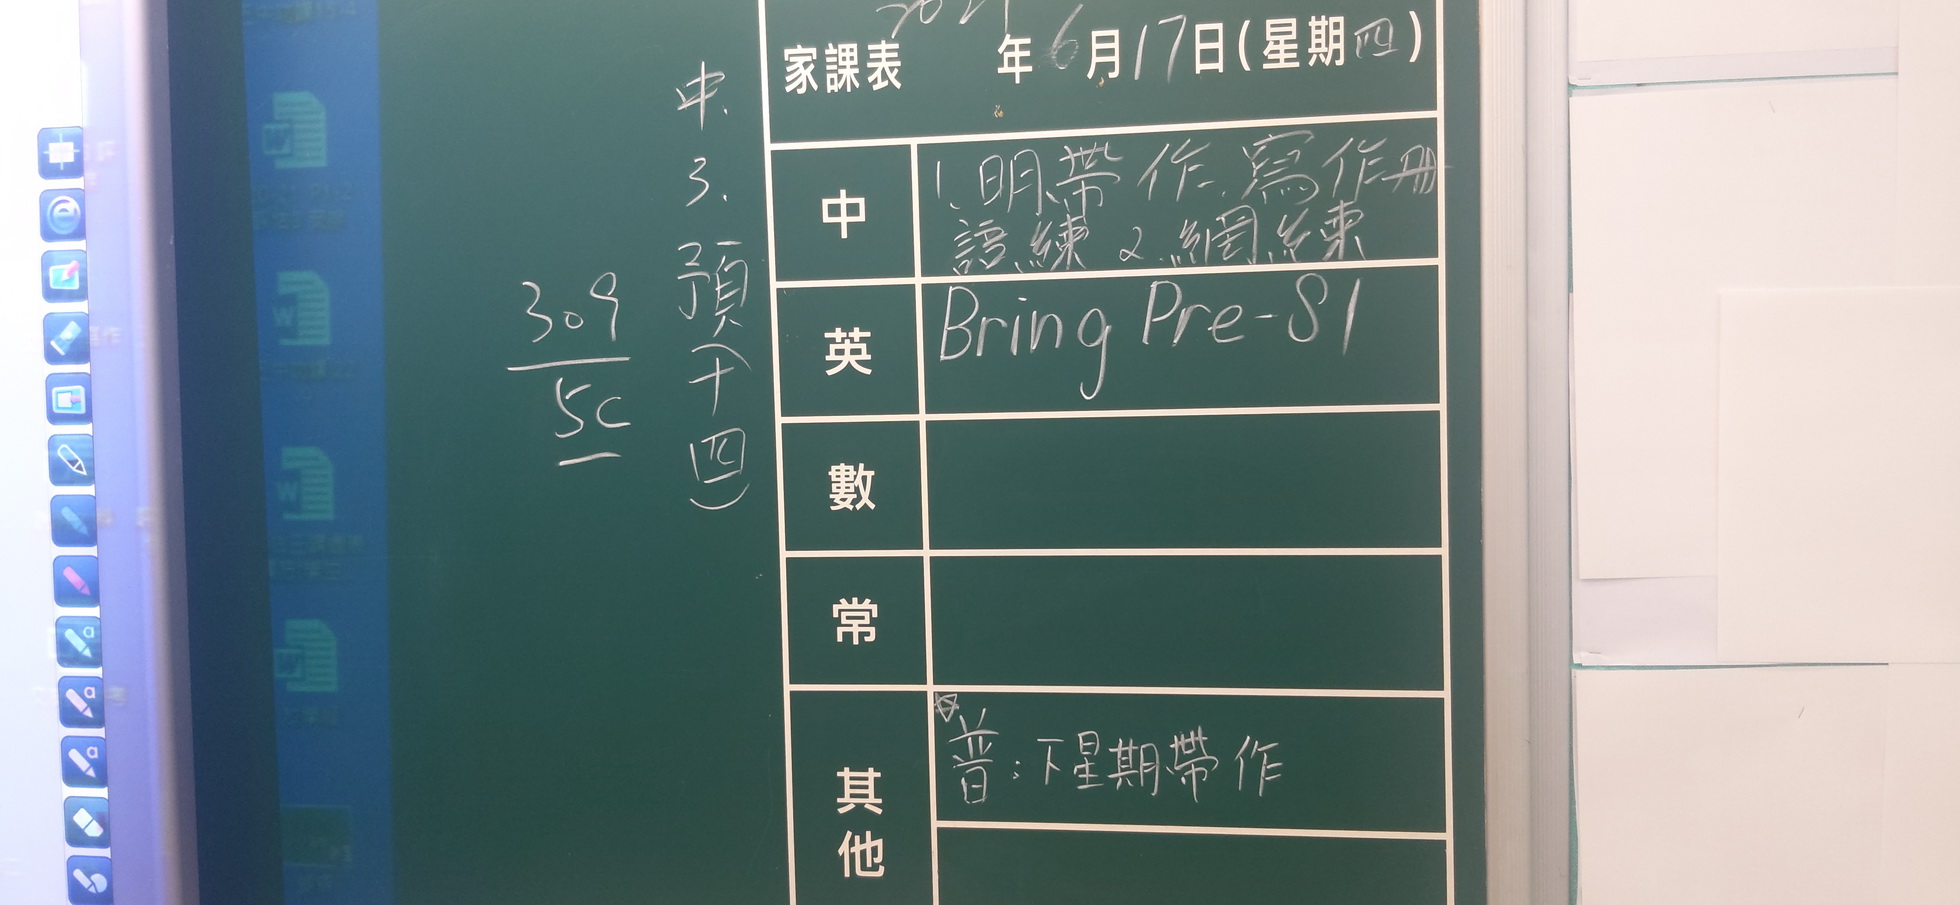 家課表 2021年6月17日(星期四)
中 1.明帶作.寫作冊
語練 2.網練
中.
3.
預
(十
四)
309
5C
英 Bring Pre-S1
數
常
其他
普:下星期帶作